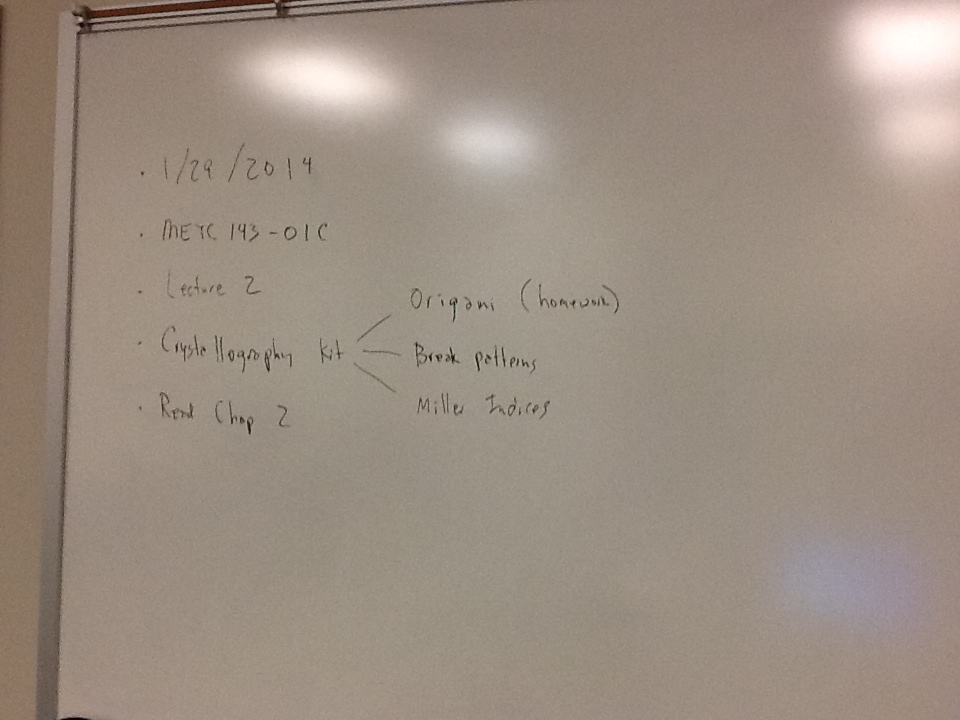 · 1/29/2014
· METC 143-01C
· Lecture 2
· Crystallography kit
Origami (homework)
Break patterns
Miller Indices
· Read Chap 2